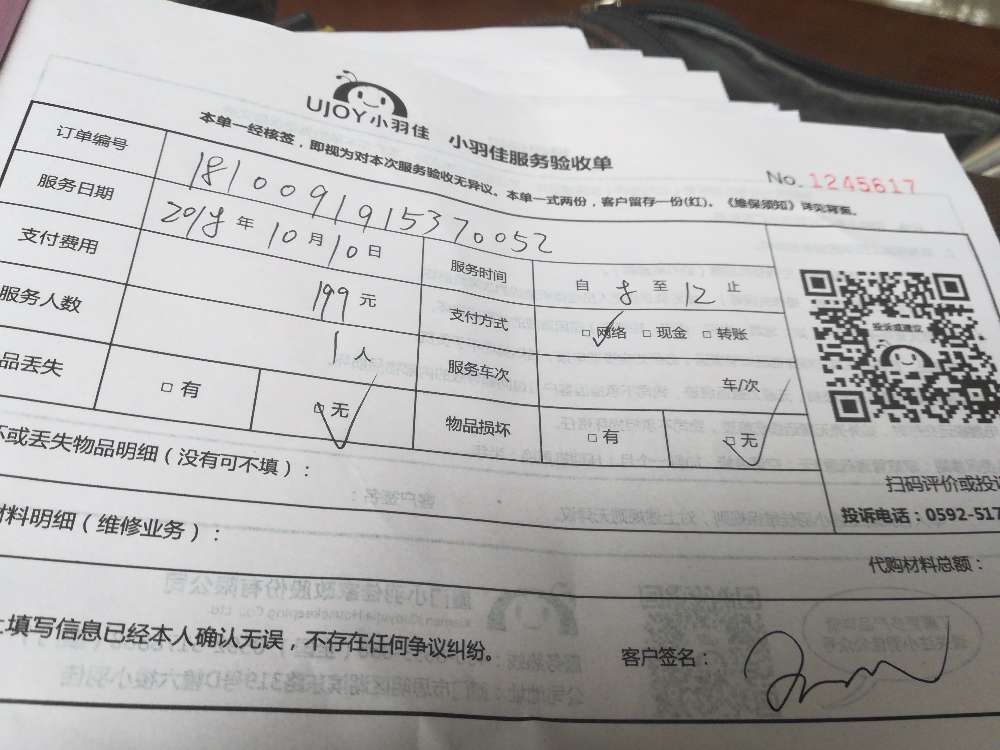 UJOY小羽佳 小羽佳服务验收单
No. 1245617
本单一经核签，即视为对本次服务验收无异议。本单一式两份，客户留存一份(红)。《维保须知》详见背面。
订单编号 1810091915370052
服务日期 2018年10月10日 服务时间 自 8 至 12 止
支付费用 199元 支付方式 □网络 □现金 □转账
服务人数 1人 服务车次 车/次
品丢失 □有 □无 物品损坏 □有 □无
投诉或建议
扫码评价或投诉
投诉电话：0592-517
坏或丢失物品明细（没有可不填）：
材料明细（维修业务）：
代购材料总额：
上填写信息已经本人确认无误，不存在任何争议纠纷。
客户签名：